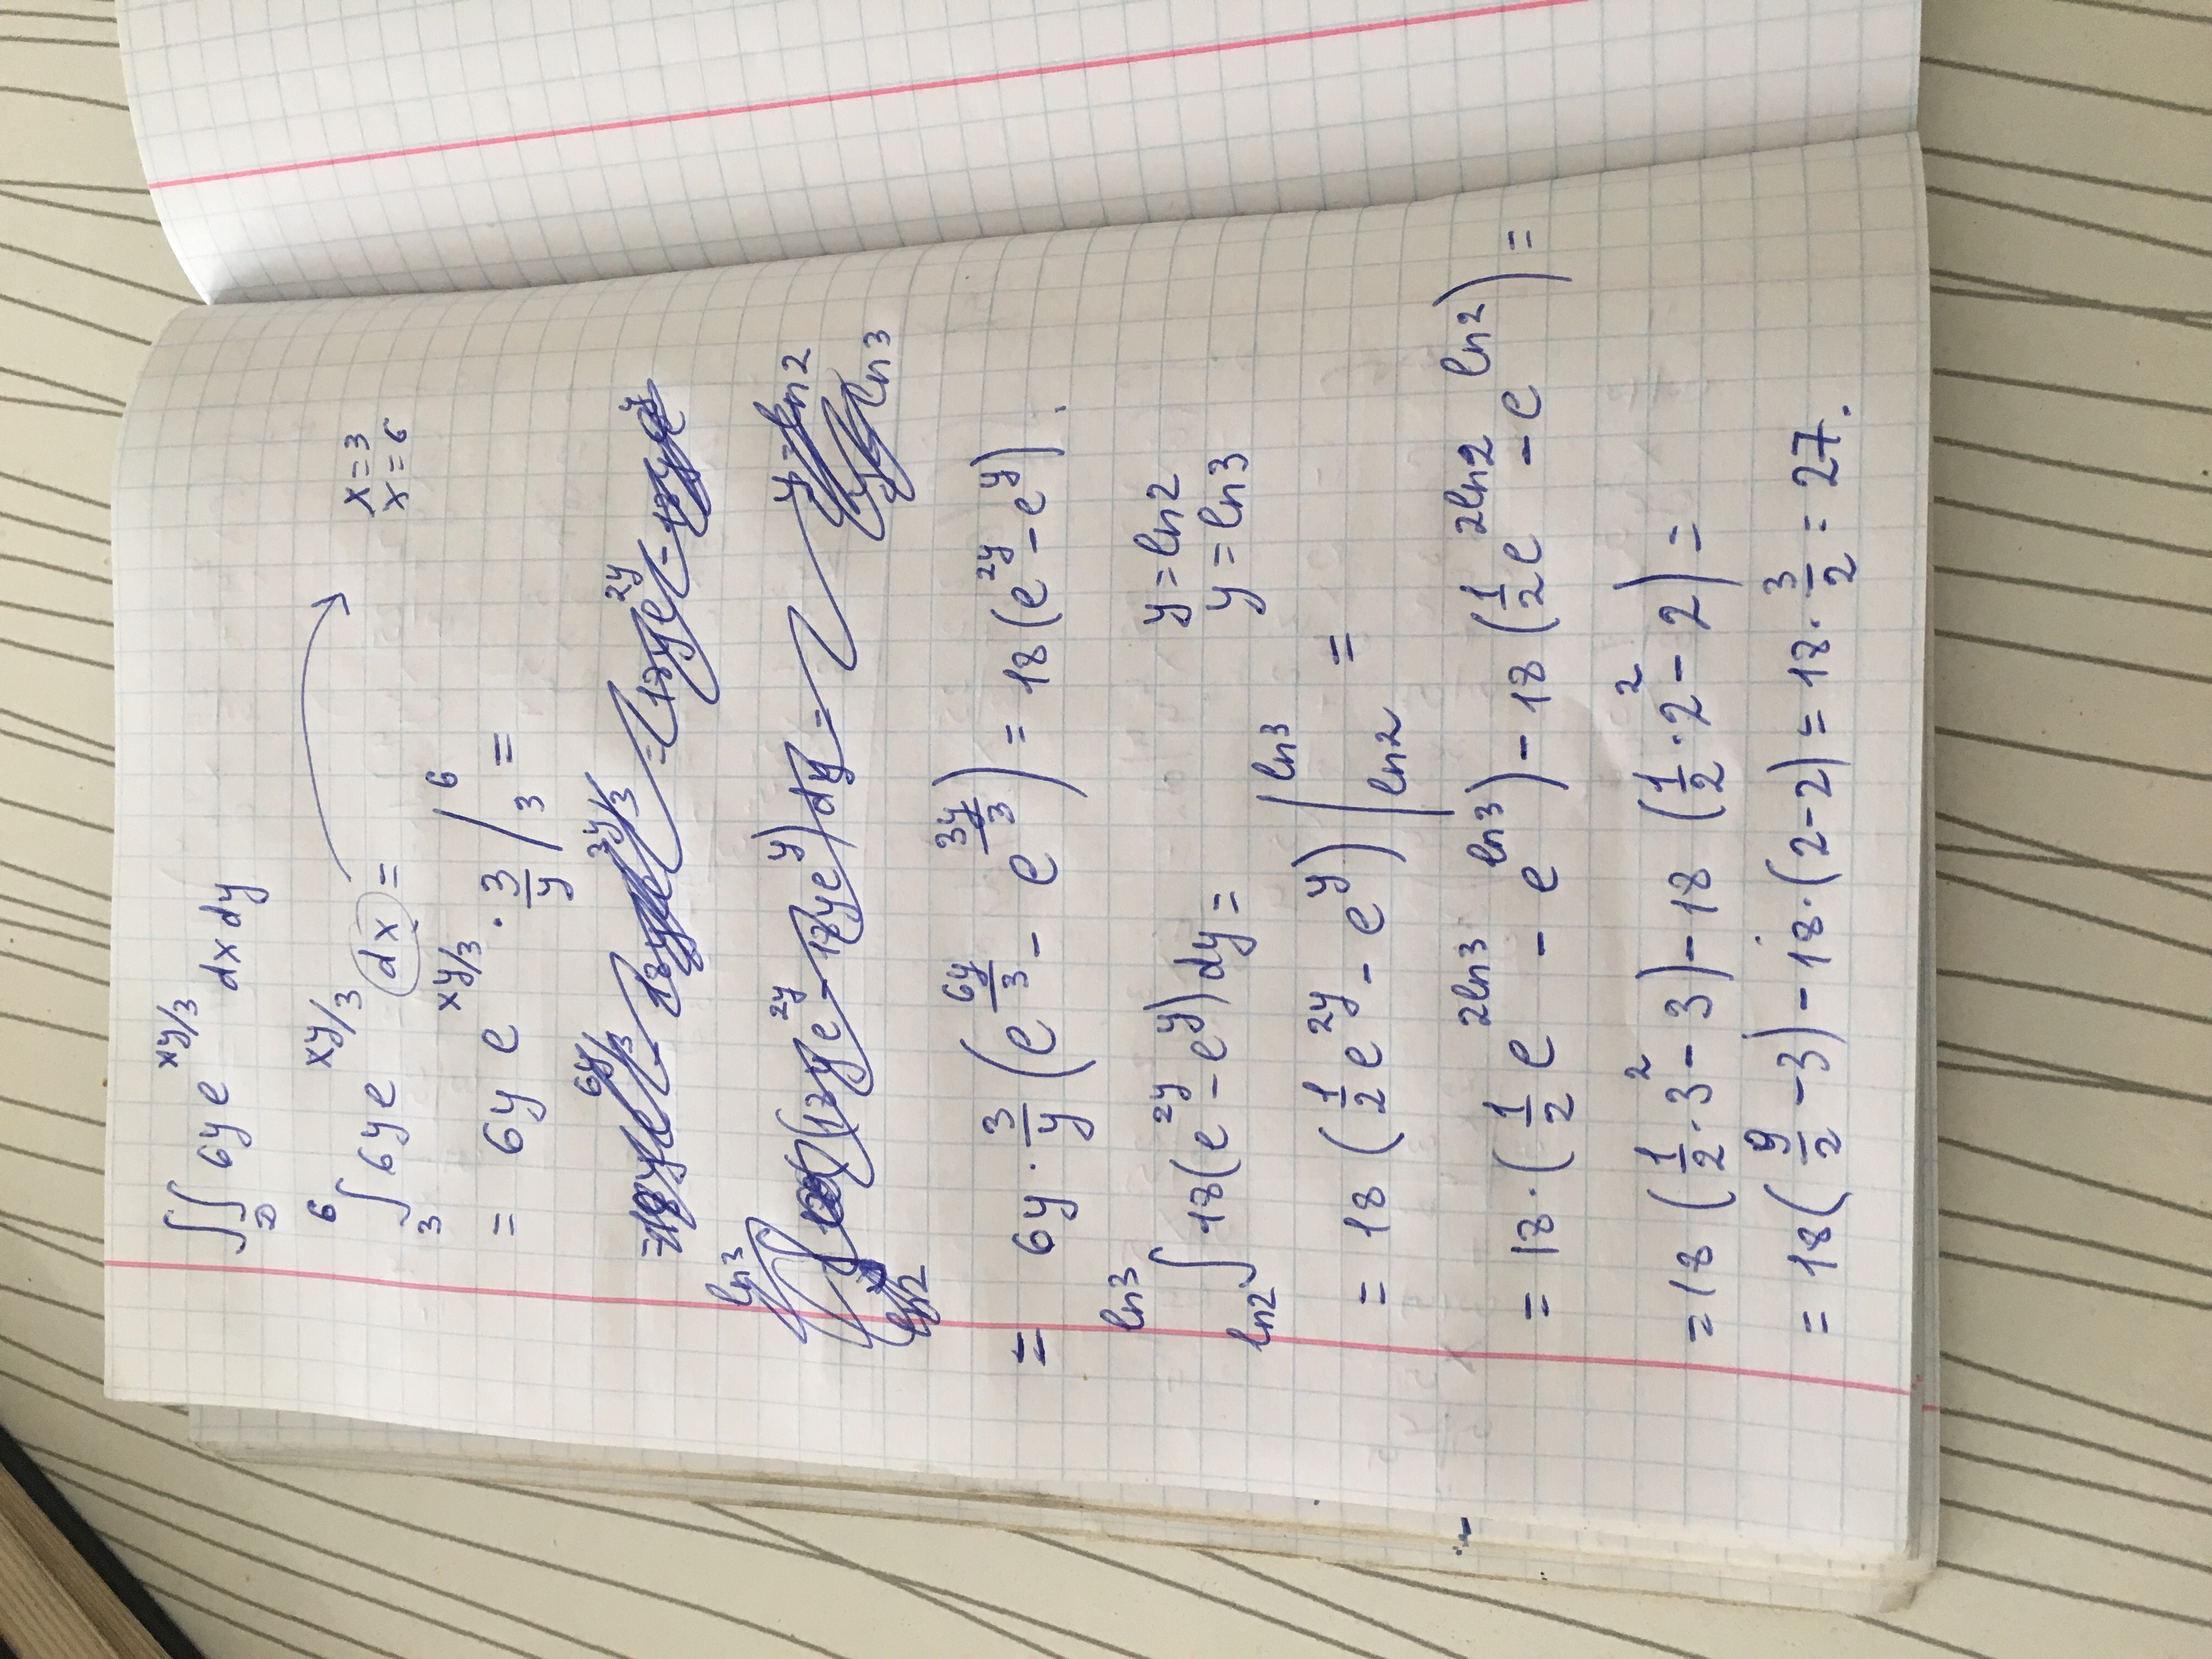 ∬_D 6y e^{xy/3} dx dy
∫_3^6 6y e^{xy/3} dx = x=3
x=6
= 6y e^{xy/3} · 3/y |_3^6 =
= 6y · 3/y (e^{6y/3} - e^{3y/3}) = 18(e^{2y} - e^y).
∫_{ln2}^{ln3} 18(e^{2y} - e^y) dy = y=ln2
y=ln3
= 18(1/2 e^{2y} - e^y) |_{ln2}^{ln3} =
= 18·(1/2 e^{2ln3} - e^{ln3}) - 18(1/2 e^{2ln2} - e^{ln2}) =
= 18(1/2·3^2 - 3) - 18(1/2·2^2 - 2) =
= 18(9/2 - 3) - 18·(2-2) = 18·3/2 = 27.